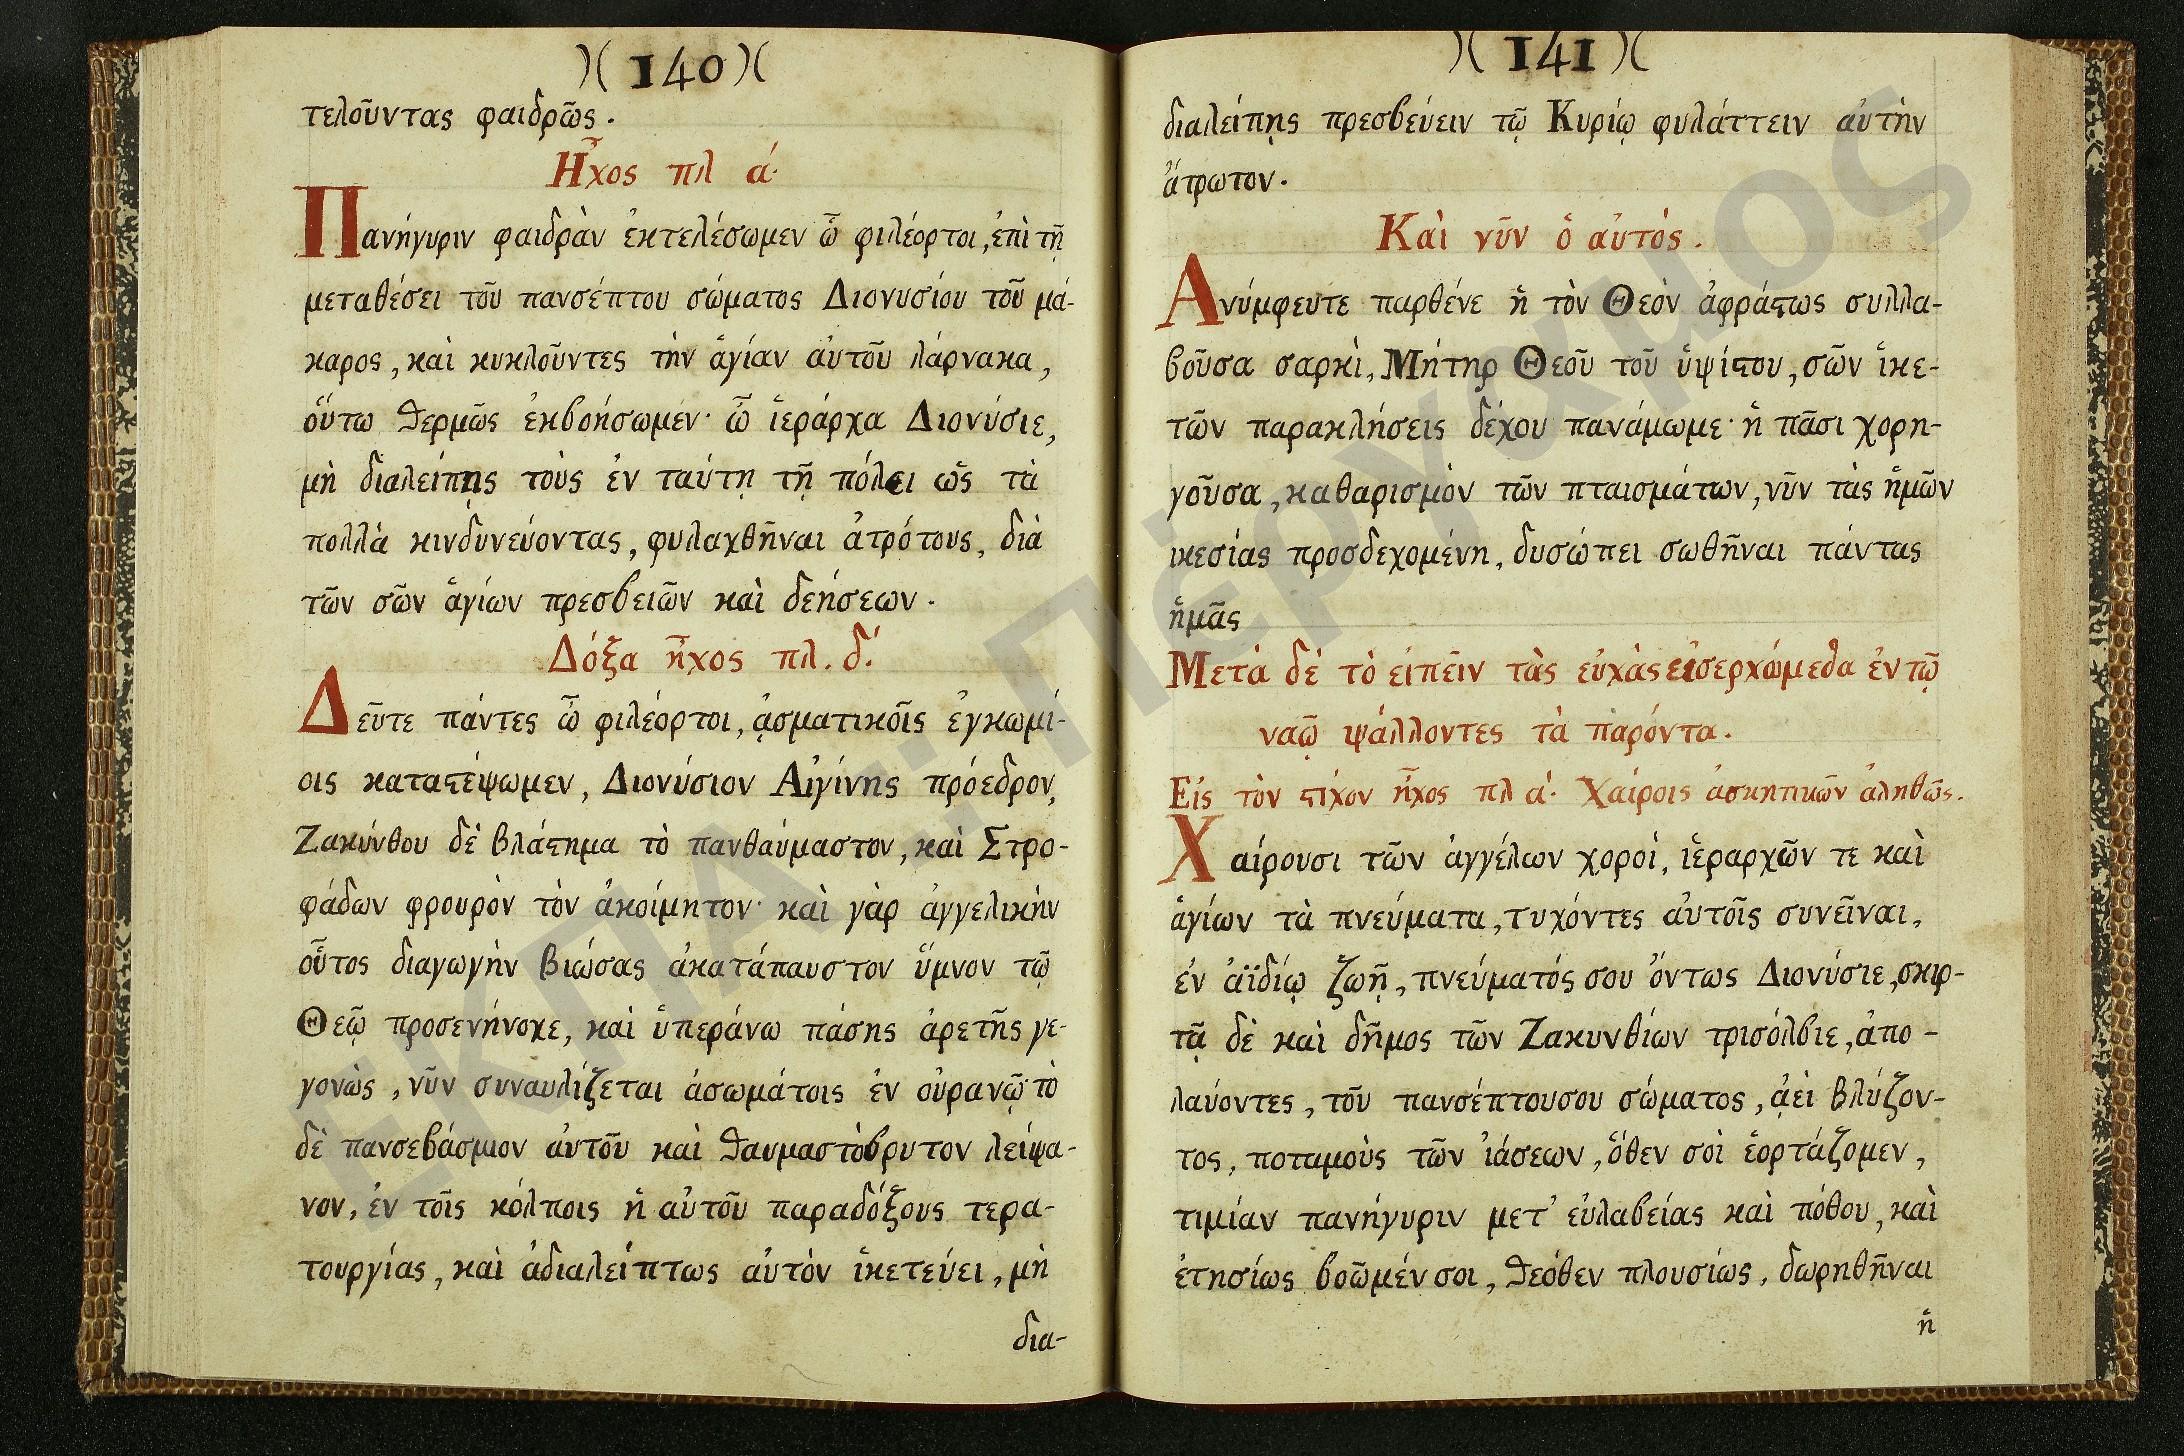 )( 140 )(
τελοῦντας φαιδρῶς.
Ἦχος πλ ά.
Πανήγυριν φαιδρὰν ἐκτελέσωμεν ὦ φιλέορτοι, ἐπὶ τῇ
μεταθέσει τοῦ πανσέπτου σώματος Διονυσίου τοῦ μά-
καρος, καὶ κυκλοῦντες τὴν ἁγίαν αὐτοῦ λάρνακα,
οὕτω θερμῶς ἐκβοήσωμεν· ὦ ἱεράρχα Διονύσιε,
μὴ διαλείπῃς τοὺς ἐν ταύτῃ τῇ πόλει ὡς τὰ
πολλὰ κινδυνεύοντας, φυλαχθῆναι ἀτρότους, διὰ
τῶν σῶν ἁγίων πρεσβειῶν καὶ δεήσεων.
Δόξα ἦχος πλ. δ΄.
Δεῦτε πάντες ὦ φιλέορτοι, ᾀσματικοῖς ἐγκωμί-
οις καταϛέψωμεν, Διονύσιον Αἰγίνης πρόεδρον,
Ζακύνθου δὲ βλάϛημα τὸ πανθαύμαστον, καὶ Στρο-
φάδων φρουρὸν τὸν ἀκοίμητον· καὶ γὰρ ἀγγελικὴν
οὗτος διαγωγὴν βιώσας ἀκατάπαυστον ὕμνον τῷ
Θεῷ προσενήνοχε, καὶ ὑπεράνω πάσης ἀρετῆς γε-
γονὼς, νῦν συναυλίζεται ἀσωμάτοις ἐν οὐρανῷ· τὸ
δὲ πανσεβάσμιον αὐτοῦ καὶ θαυμαστὸβρυτον λείψα-
νον, ἐν τοῖς κόλποις ἡ αὐτοῦ παραδόξους τερα-
τουργίας, καὶ ἀδιαλείπτως αὐτὸν ἱκετεύει, μὴ
δια-
)( 141 )(
διαλείπῃς πρεσβεύειν τῷ Κυρίῳ φυλάττειν αὐτὴν
ἄτρωτον.
Καὶ νῦν ὁ αὐτός.
Ἀνύμφευτε παρθένε ἡ τὸν Θεὸν ἀφράϛως συλλα-
βοῦσα σαρκὶ, Μήτηρ Θεοῦ τοῦ ὑψίϛου, σῶν ἱκε-
τῶν παρακλήσεις δέχου πανάμωμε· ἡ πᾶσι χορη-
γοῦσα, καθαρισμὸν τῶν πταισμάτων, νῦν τὰς ἡμῶν
ικεσίας προσδεχομένη, δυσώπει σωθῆναι πάντας
ἡμᾶς
Μετὰ δὲ τὸ εἰπεῖν τὰς εὐχὰς εἰσερχώμεθα ἐν τῷ
ναῷ ψάλλοντες τὰ παρόντα.
Εἰς τὸν ϛίχον ἦχος πλ ά. Χαίροις ἀσκητικῶν ἀληθῶς.
Χαίρουσι τῶν ἀγγέλων χοροὶ, ἱεραρχῶν τε καὶ
ἁγίων τὰ πνεύματα, τυχόντες αὐτοῖς συνεῖναι,
ἐν ἀϊδίῳ ζωῇ, πνεύματός σου ὄντως Διονύσιε, σκιρ-
τᾷ δὲ καὶ δῆμος τῶν Ζακυνθίων τρισόλβιε, ἀπο-
λαύοντες, τοῦ πανσέπτουσου σώματος, ἀεὶ βλύζον-
τος, ποταμοὺς τῶν ἰάσεων, ὅθεν σοὶ ἑορτάζομεν,
τιμίαν πανήγυριν μετ᾽ εὐλαβείας καὶ πόθου, καὶ
ἐτησίως βοῶμέν σοι, θεόθεν πλουσίως, δωρηθῆναι
ἡ
ΕΚΠΑ ... ΠΕΡΓΑΜΟΣ